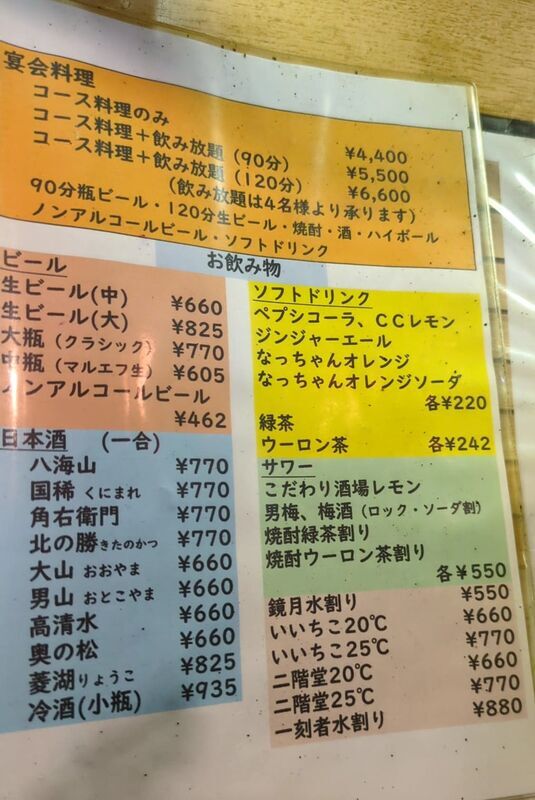 宴会料理
コース料理のみ ¥4,400
コース料理+飲み放題(90分) ¥5,500
コース料理+飲み放題(120分) ¥6,600
(飲み放題は4名様より承ります)
90分瓶ビール・120分生ビール・焼酎・酒・ハイボール
ノンアルコールビール・ソフトドリンク
お飲み物
ビール
生ビール(中) ¥660
生ビール(大) ¥825
大瓶(クラシック) ¥770
中瓶(マルエフ生) ¥605
ノンアルコールビール
¥462
日本酒 (一合)
八海山 ¥770
国稀 くにまれ ¥770
角右衛門 ¥770
北の勝 きたのかつ ¥770
大山 おおやま ¥660
男山 おとこやま ¥660
高清水 ¥660
奥の松 ¥660
菱湖 りょうこ ¥825
冷酒(小瓶) ¥935
ソフトドリンク
ペプシコーラ、CCレモン
ジンジャーエール
なっちゃんオレンジ
なっちゃんオレンジソーダ
各¥220
緑茶
ウーロン茶 各¥242
サワー
こだわり酒場レモン
男梅、梅酒(ロック・ソーダ割)
焼酎緑茶割り
焼酎ウーロン茶割り
各¥550
鏡月水割り ¥550
いいちこ20℃ ¥660
いいちこ25℃ ¥770
二階堂20℃ ¥660
二階堂25℃ ¥770
一刻者水割り ¥880